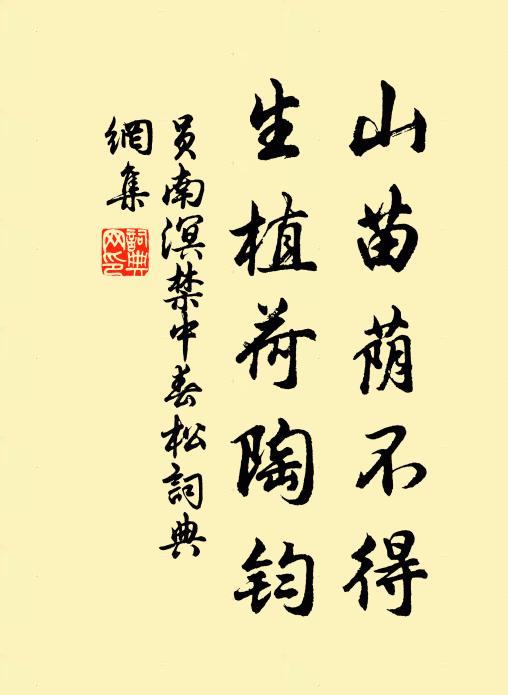 山苗荫不得
生植荷陶钧
员南溟禁中春松詞典
網集
詞典
网印